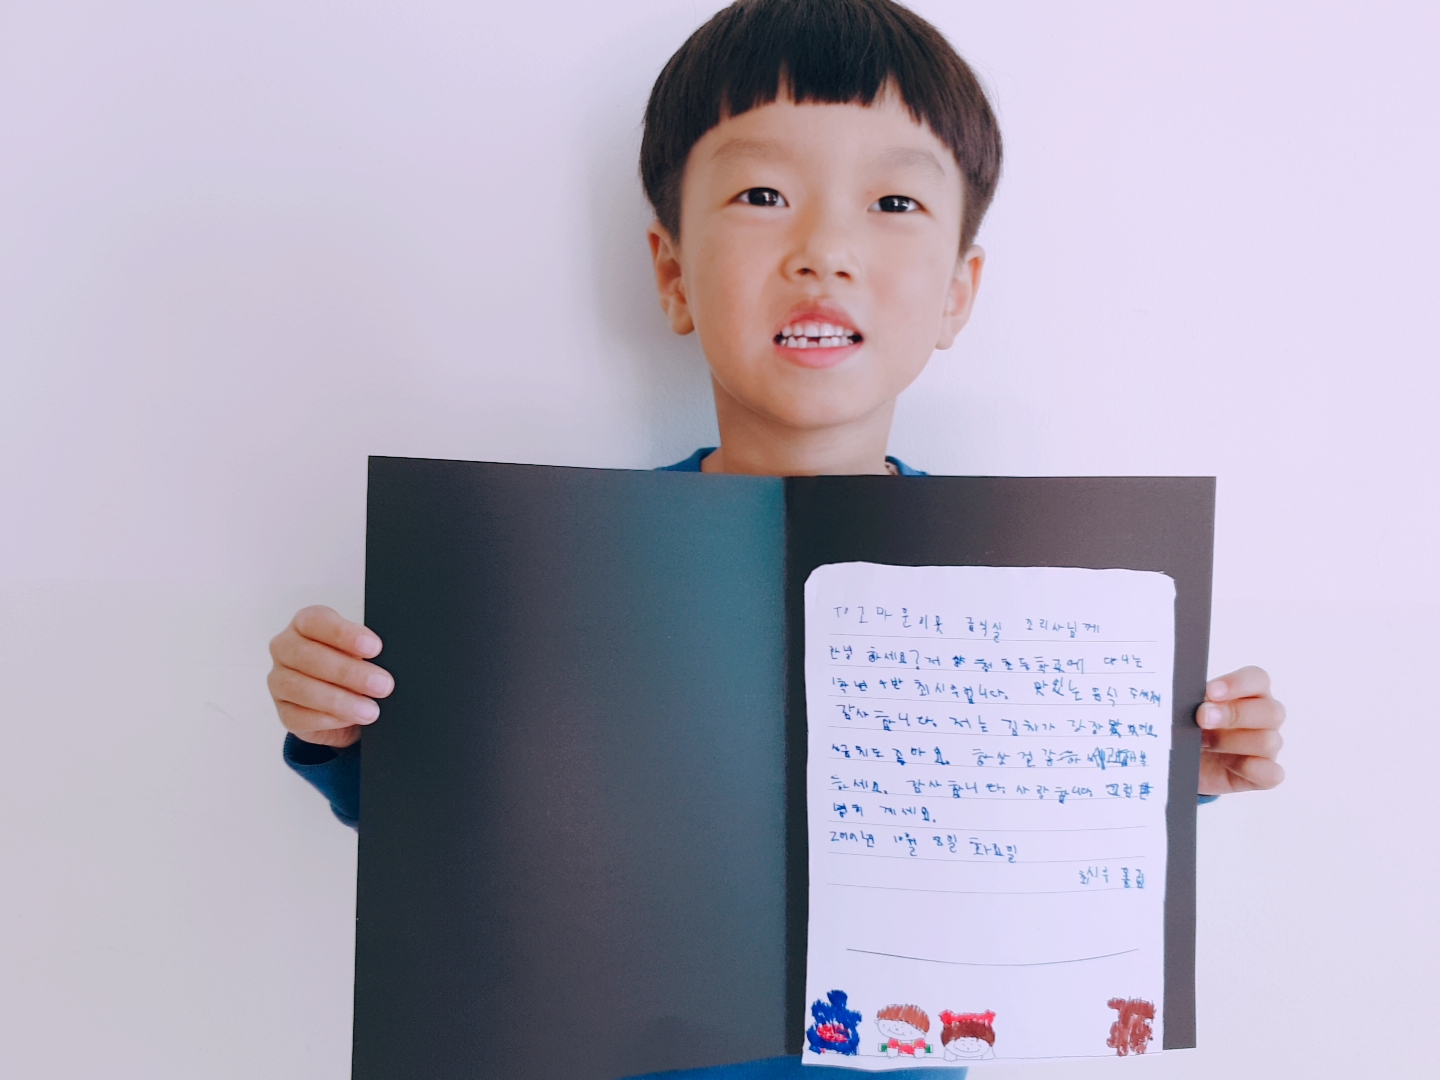 To 고마운이웃 급식실 조리사님께
안녕하세요? 저 청초등학교에 다니는
1학년 4반 최시우입니다. 맛있는 음식 주셔서
감사합니다. 저는 김치가 가장
도 좋아요. 항상 건강하
하세요. 감사합니다 사랑합니다 그럼
계세요.
10월 8일 화요일
최시우 올림